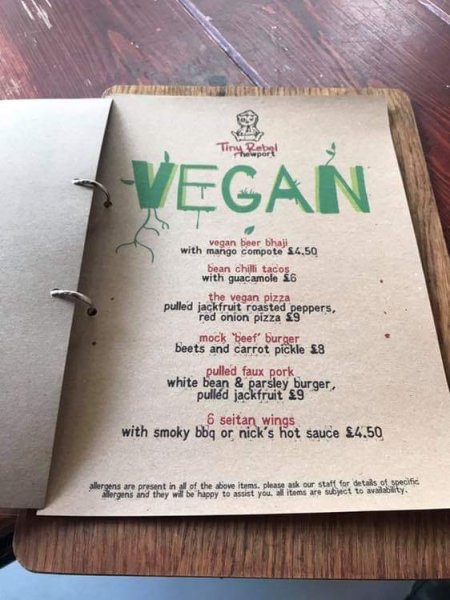 Tiny Rebel
newport
VEGAN
vegan beer bhaji
with mango compote £4.50
bean chilli tacos
with guacamole £6
the vegan pizza
pulled jackfruit roasted peppers,
red onion pizza £9
mock 'beef' burger
beets and carrot pickle £8
pulled faux pork
white bean & parsley burger,
pulled jackfruit £9
6 seitan wings
with smoky bbq or nick's hot sauce £4.50
allergens are present in all of the above items. please ask our staff for details of specific
allergens and they will be happy to assist you. all items are subject to availability.